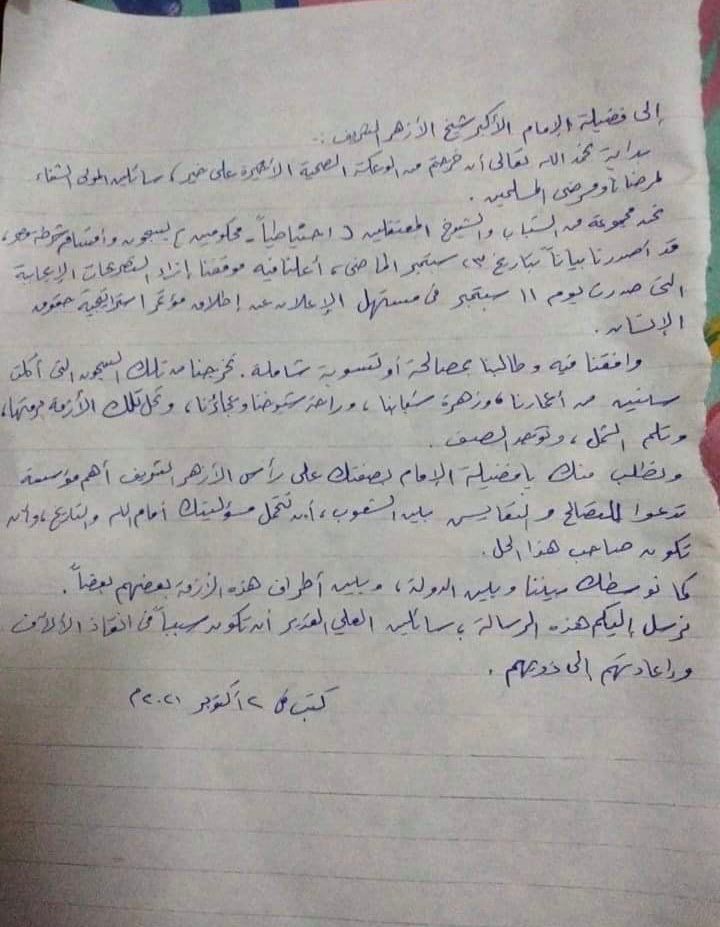 إلى فضيلة الإمام الأكبر شيخ الأزهر الشريف ..
بداية نحمد الله تعالى أن خرجتم من الوعكة الصحية الأخيرة على خير، سائلين المولى الشفاء
لمرضانا ومرضى المسلمين .
نحن مجموعة من الشباب والشيوخ المعتقلين ( احتياطياً - محكومين ) بسجون وأقسام شرطة مصر،
قد أصدرنا بياناً بتاريخ ٢٣ سبتمبر الماضي، أعلنا فيه موقفنا إزاء التصريحات الإيجابية
التى صدرت يوم ١١ سبتمبر فى مستهل الإعلان عن إطلاق مؤتمر استراتيجية حقوق
الإنسان .
وافقنا فيه وطالبنا بمصالحة أو تسوية شاملة. تخرجنا من تلك السجون التى أكلت
سنين من أعمارنا، وزهرة شبابنا، وراحة شيوخنا وعجائزنا، وتحل تلك الأزمة برمتها،
وتلم الشمل، وتوحد الصف .
ونطلب منك يا فضيلة الإمام بصفتك على رأس الأزهر الشريف أهم مؤسسة
تدعوا للتصالح والتعايش بين الشعوب، أن تتحمل مسؤليتك أمام الله والتاريخ، وأن
تكون صاحب هذا الحل .
كما نوسطك بيننا وبين الدولة، وبين أطراف هذه الأزمة بعضهم بعضاً .
نرسل إليكم هذه الرسالة، سائلين العلي القدير أن تكون سبباً فى انقاذ الآلاف
وإعادتهم الى ذويهم .
كتب فى ٢ أكتوبر ٢٠٢١م